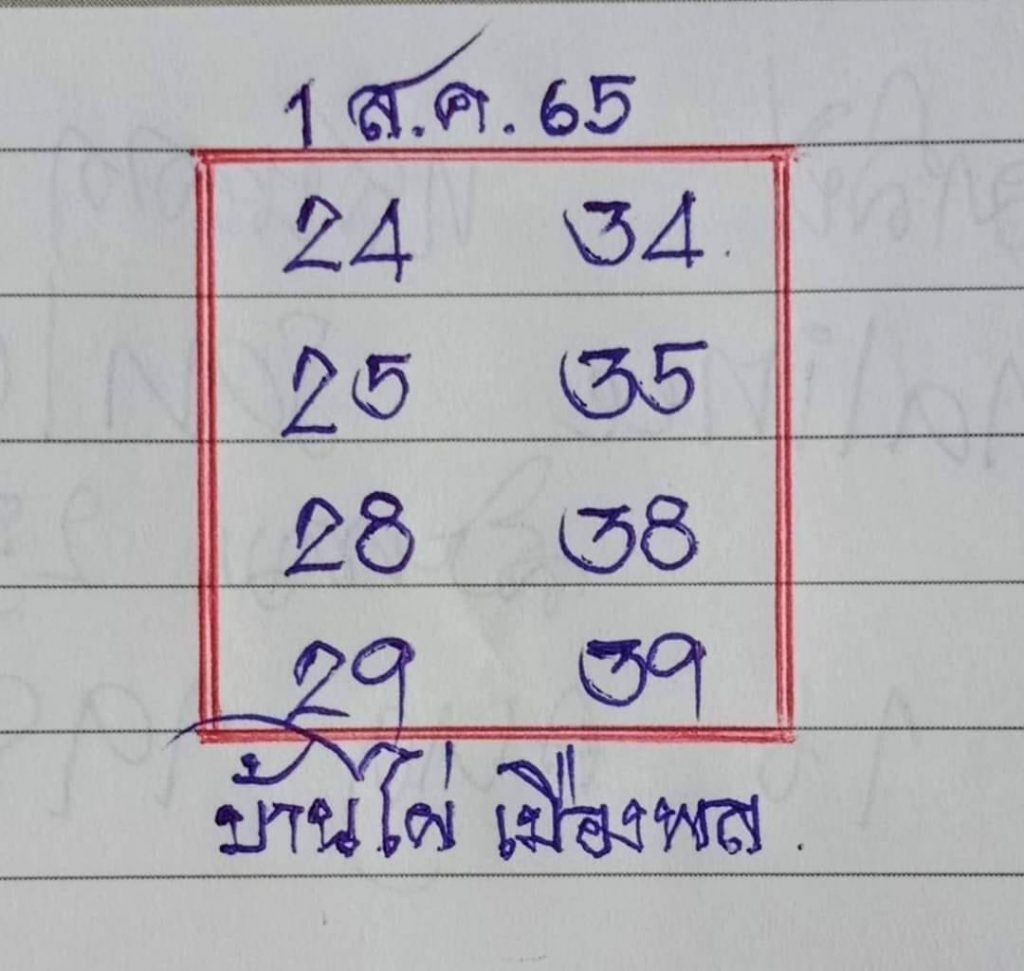 1 ส.ค. 65
24 34
25 35
28 38
29 39
บ้านไผ่ เมืองพล